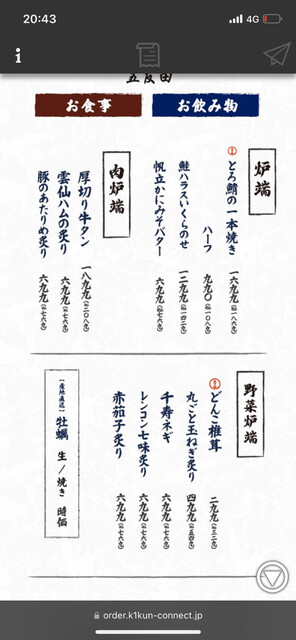 20:43
4G
五反田
お食事
お飲み物
炉端
① とろ鯖の一本焼き 一六九九(一八六九)
ハーフ 九九〇(一〇八九)
鮭ハラスいくらのせ 一二九九(一四二九)
帆立かにみそバター 六九九(七六九)
肉炉端
厚切り牛タン 一八九九(二〇八九)
雲仙ハムの炙り 六九九(七六九)
豚のあたりめ炙り 六九九(七六九)
野菜炉端
① どんこ椎茸 二九九(三二九)
丸ごと玉ねぎ炙り 四九九(五四九)
千寿ネギ 六九九(七六九)
レンコン七味炙り 六九九(七六九)
赤茄子炙り 六九九(七六九)
【産地直送】 牡蠣 生/焼き 時価
order.k1kun-connect.jp